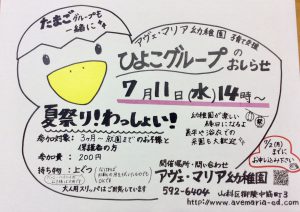 たまごグループも
一緒に
アヴェ・マリア幼稚園 子育て支援
ひよこグループの
おしらせ
7月11日(水)14時〜
夏祭り!わっしょい!
幼稚園が楽しい
縁日になるよ
参加対象: 3ヶ月〜就園までのお子様と
保護者の方
参加費: 200円
持ち物: 上ぐつ
大人用スリッパはご用意しています
開催場所・問い合わせ
アヴェ・マリア幼稚園
592-6404 山科区御陵中筋町3
http://www.avemaria-ed.com/
までに
お申し込み下さい